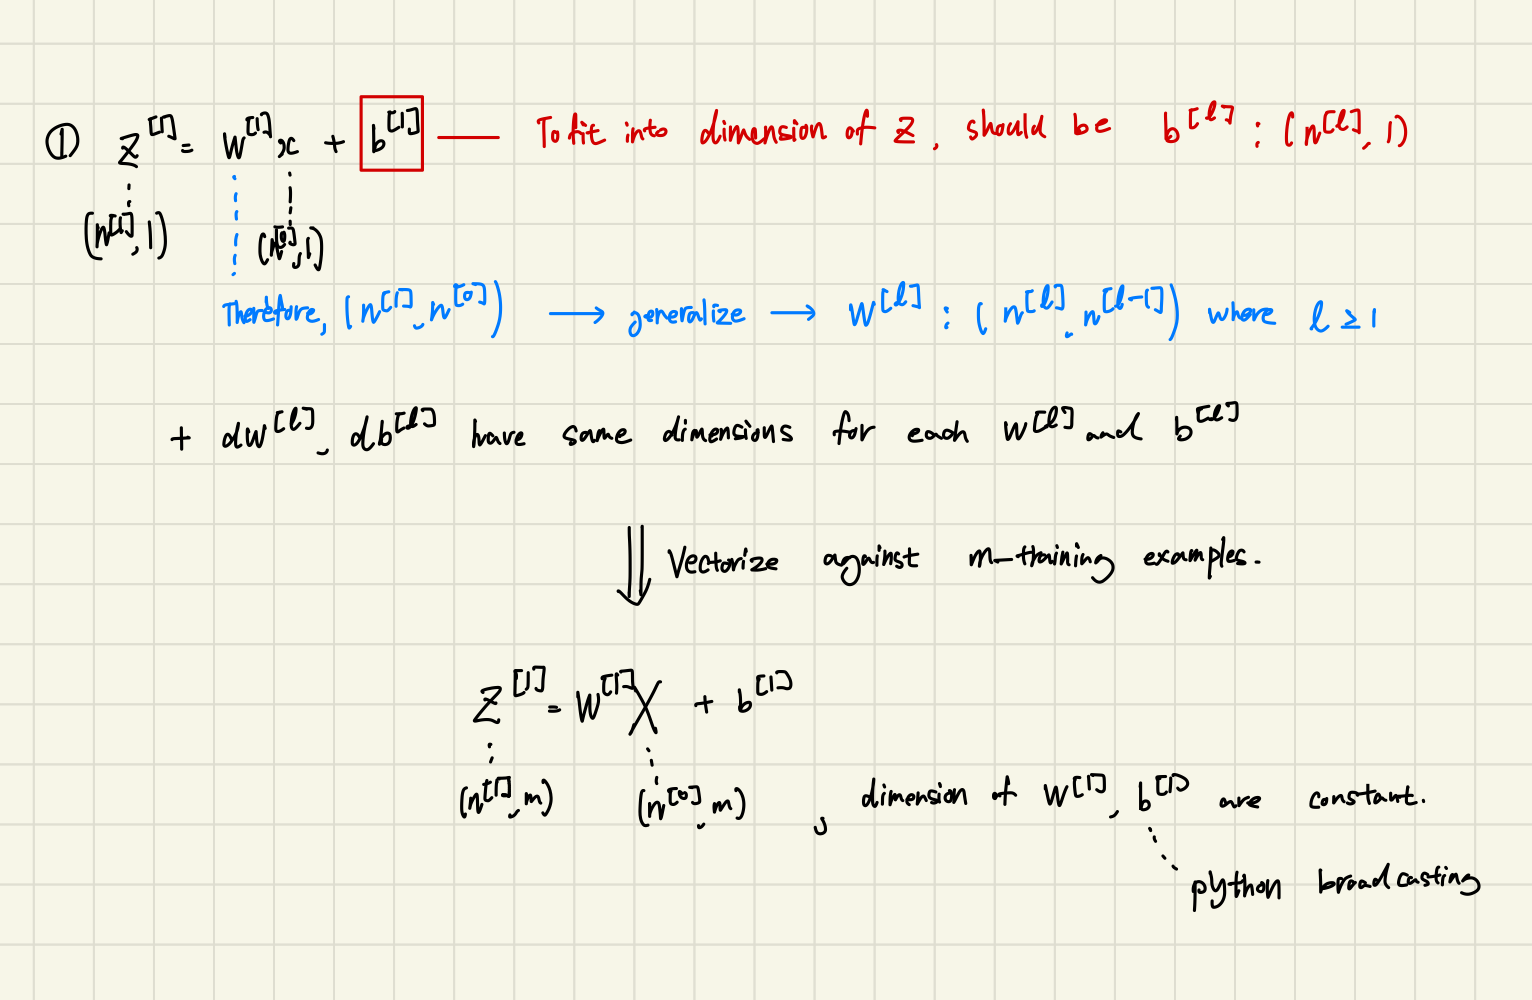 ① Z^[1] = W^[1]x + b^[1] — To fit into dimension of Z, should be b^[l] : (n^[l], 1)
(n^[1], 1) (n^[0], 1)
Therefore, (n^[1], n^[0]) → generalize → W^[l] : (n^[l], n^[l-1]) where l ≥ 1
+ dW^[l], db^[l] have same dimensions for each W^[l] and b^[l]
⇓ Vectorize against m-training examples.
Z^[1] = W^[1]X + b^[1]
(n^[1], m) (n^[0], m) , dimension of W^[1], b^[1] are constant.
python broadcasting